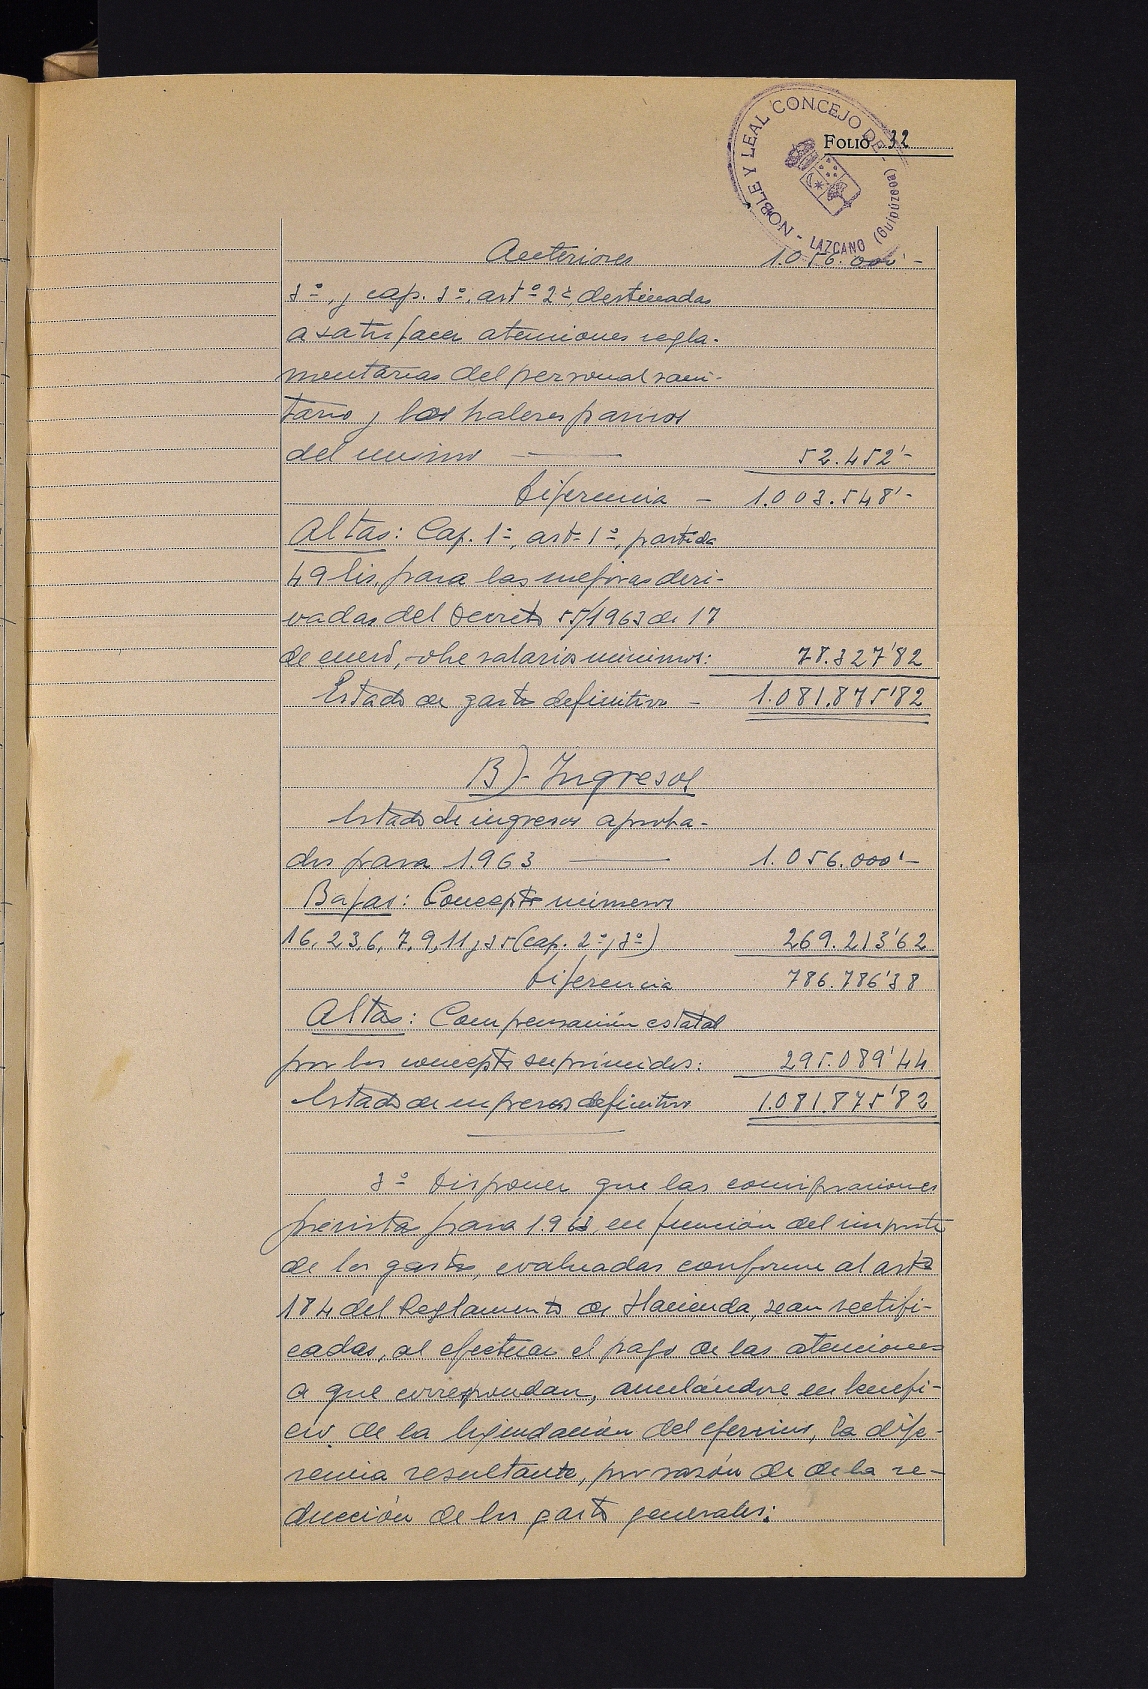 NOBLE Y LEAL CONCEJO DE - LAZCANO (Guipúzcoa)
FOLIO 32
Anteriores 1.056.000'-
3º, y cap. 3º, artº 2º, destinadas
a satisfacer atenciones regla-
mentarias del personal sani-
tario y los haberes pasivos
del mismo — 52.452'-
Diferencia - 1.003.548'-
Altas: Cap. 1º, artº 1º, partida
49 bis, para las mejoras deri-
vadas del Decreto 55/1963 de 17
de enero, sobre salarios mínimos: 78.327'82
Estado de gastos definitivo - 1.081.875'82
B)- Ingresos
Estado de ingresos aproba-
dos para 1.963 — 1.056.000'-
Bajas: Conceptos números
16, 23, 6, 7, 9, 11 y 35 (cap. 2º y 3º) 269.213'62
Diferencia 786.786'38
Altas: Compensación estatal
por los conceptos suprimidos: 295.089'44
Estado de ingresos definitivo 1.081.875'82
3º Disponer que las consignaciones
previstas para 1.963, en función del importe
de los gastos, evaluadas conforme al artº
184 del Reglamento de Hacienda, sean rectifi-
cadas, al efectuar el pago de las atenciones
a que correspondan, anulándose en benefi-
cio de la liquidación del ejercicio, la dife-
rencia resultante, por razón de de la re-
ducción de los gastos generales: